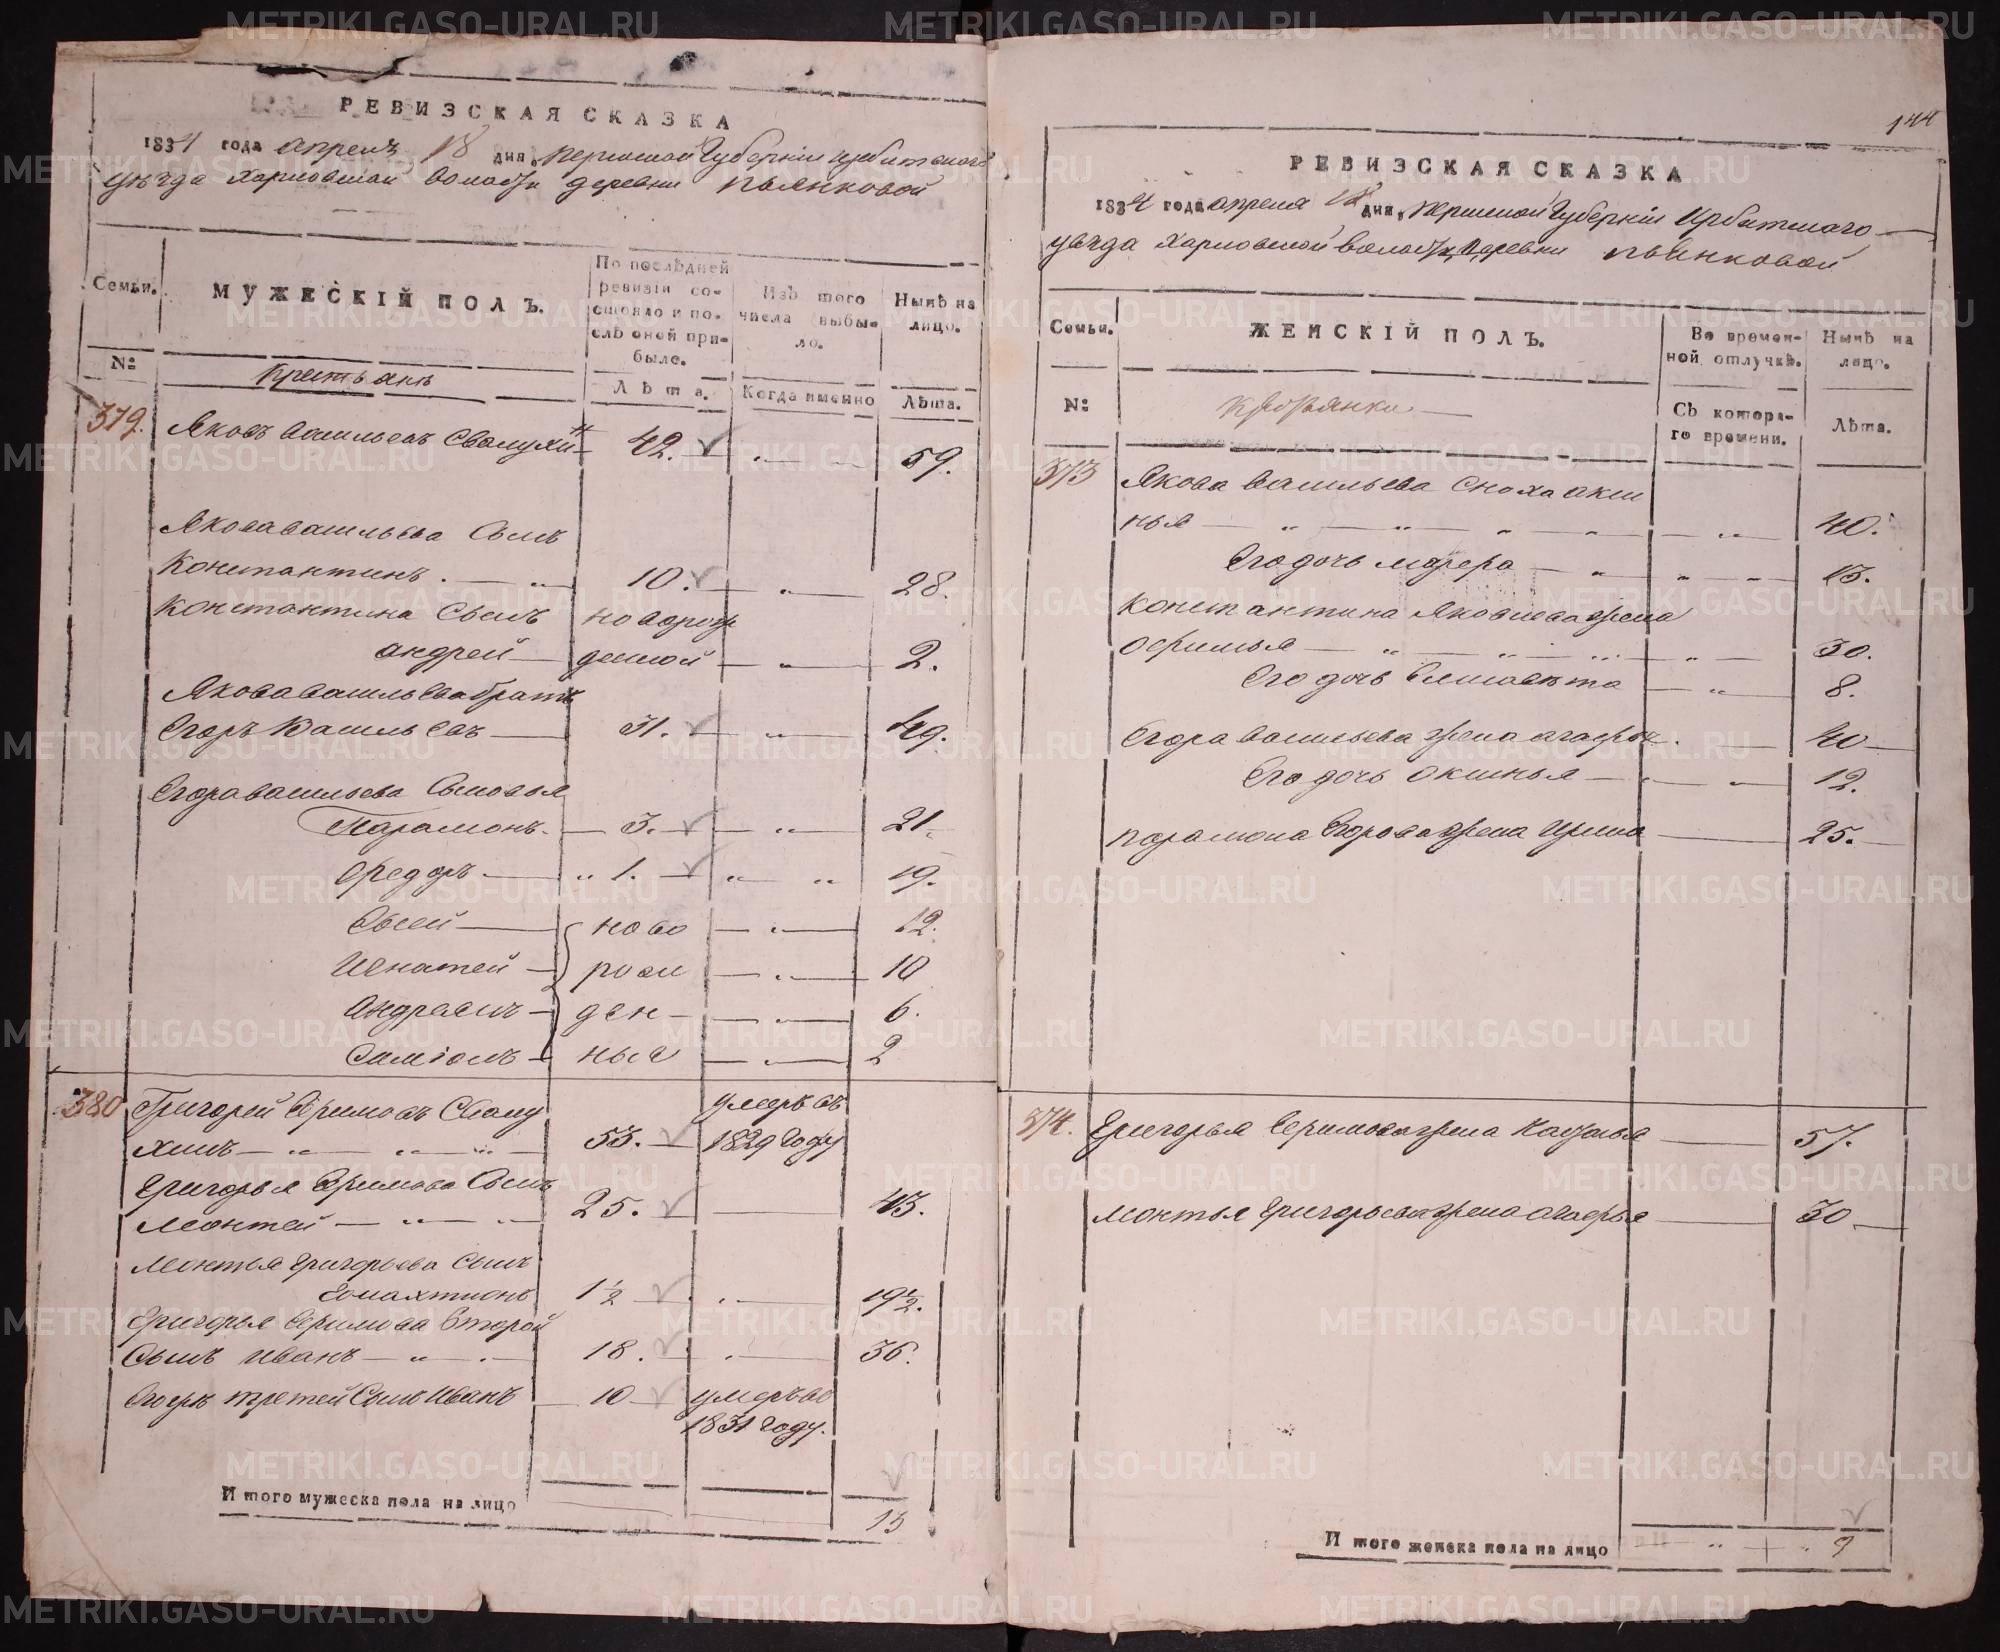 РЕВИЗСКАЯ СКАЗКА
1834 года апреля 18 дня, Пермской Губерніи Ирбитскаго
уѣзда Харловской волости деревни Пьянковой
Семьи.
МУЖЕСКІЙ ПОЛЪ.
По послѣдней ревизіи состояло и послѣ оной прибыло.
Изъ того числа выбыло.
Нынѣ на лицо.
№
Крестьяне
Лѣта.
Когда именно
Лѣта.
379. Яковъ Васильевъ Свалухинъ 42. 59.
Якова Васильева Сынъ
Константинъ. 10. 28.
Константина Сынъ новорож
Андрей денной 2.
Якова Васильева братъ
Егоръ Васильевъ 31. 49.
Егора Васильева Сыновья
Парамонъ. 3. 21.
Федоръ 1. 19.
Евсей ново 12.
Игнатей рож 10
Андреянъ ден 6.
Самiолъ ныя 2
380 Григорей Ефимовъ Свалу умеръ въ
хинъ 53. 1829 Году
Григорья Ефимова Сынъ
Леонтей 25. 43.
Леонтья Григорьева Сынъ
1 1/2 19 1/2.
Григорья Ефимова второй
Сынъ Иванъ 18. 36.
Егоръ третей Сынъ Иванъ 10 умеръ въ
1831 Году.
Итого мужеска пола на лицо 13
144
РЕВИЗСКАЯ СКАЗКА
1834 года апреля 18 дня, Пермской Губерніи Ирбитскаго
уѣзда Харловской волости, Деревни Пьянковой
Семьи.
ЖЕНСКІЙ ПОЛЪ.
Во временной отлучкѣ.
Нынѣ на лицо.
№
Крестьянки
Съ котораго времени.
Лѣта.
373 Якова Васильева Сноха Акси
нья 40.
Его дочь Марфа 13.
Константина Яковлева жена
Офимья 30.
Его дочь Елисавета 8.
Егора Васильева жена Агафья. 40
Его дочь Оксинья 12.
Парамона Егорова жена Ирина 25.
374. Григорья Ефимова жена Наталья 57.
Леонтья Григорьева жена Агафья 30
Итого женска пола на лицо 9
METRIKI.GASO-URAL.RU